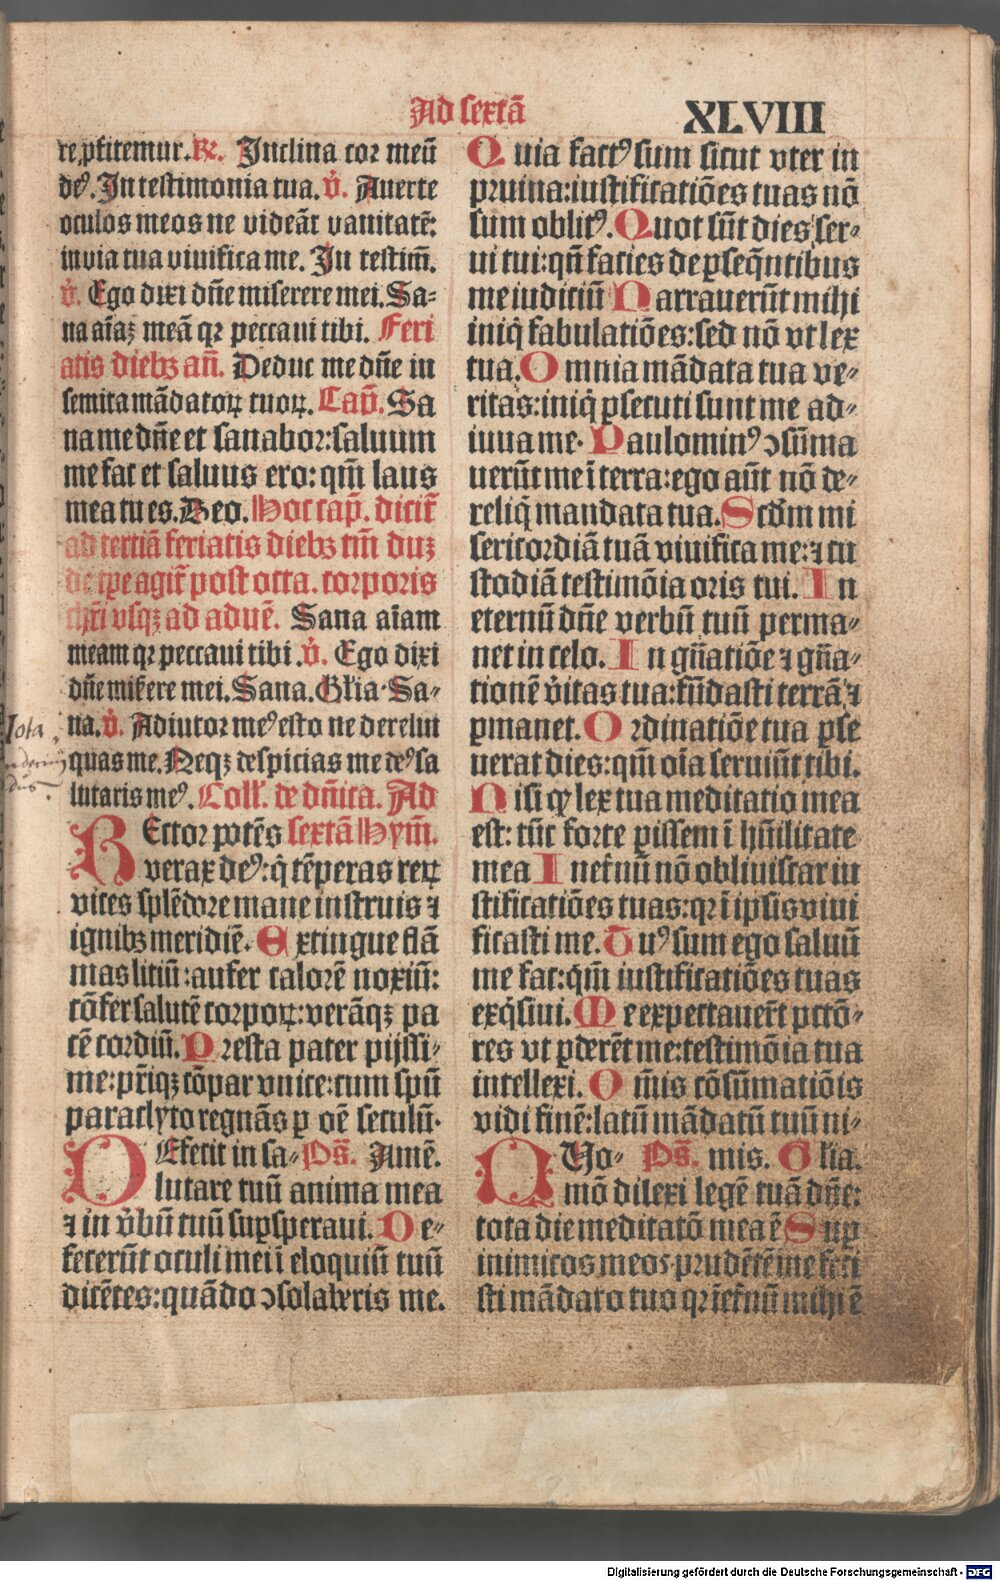 Ad sextā
XLVIII
re ꝓfitemur. ℟. Inclina cor meū
deꝰ. In testimonia tua. v̇. Auerte
oculos meos ne videāt vanitatē:
in via tua viuifica me. In testim̄.
v̇. Ego dixi dn̄e miserere mei. Sa-
na aīaꝫ meā qꝛ peccaui tibi. Feri
atis diebꝫ an̄. Deduc me dn̄e in
semita mādatoꝝ tuoꝝ. Cap̄. Sa
na me dn̄e et sanabor: saluum
me fac et saluus ero: qm̄ laus
mea tu es. Deo. Hoc cap̄. dicit̄
ad terciā feriatis diebꝫ tm̄ duꝫ
de tꝑe agit̄ post octa. corporis
chr̄i vsqꝫ ad aduē. Sana aīam
meam qꝛ peccaui tibi. v̇. Ego dixi
dn̄e mis̄ere mei. Sana. Gl̄ia. Sa-
na. v̇. Adiutor meꝰ esto ne derelin
quas me. Neqꝫ despicias me deꝰ sa
lutaris meꝰ. Coll̄. de dn̄ica. Ad
REctor potēs sextā Hym̄.
verax deꝰ: q̇ tēperas reꝝ
vices splēdore mane instruis ⁊
ignibꝫ meridiē. Extingue flā
mas litiū: aufer calorē noxiū:
cōfer salutē corpoꝝ: verāqꝫ pa
cē cordiū. Presta pater pijssi-
me: pr̄iqꝫ cōpar vnice: cum spū
paraclyto regnās ꝑ oē seculū.
DEfecit in sa- Ps̄. Amē.
lutare tuū anima mea
⁊ in v̇bū tuū suꝑsperaui. De-
fecerūt oculi mei ī eloquiū tuū
dicētes: quādo ↄsolaberis me.
Quia factꝰ sum sicut vter in
pruina: iustificatiōes tuas nō
sum oblitꝰ. Quot sūt dies ser-
ui tui: qn̄ facies de ꝑseq̄ntibus
me iudiciū Narrauerūt mihi
iniq̇ fabulatiōes: sed nō vt lex
tua. Omnia mādata tua ve-
ritas: iniq̇ ꝑsecuti sunt me ad-
iuua me. Paulominꝰ ↄsūma
uerūt me ī terra: ego aūt nō de-
reliq̇ mandata tua. Scd̄m mi
sericordiā tuā viuifica me: ⁊ cu
stodiā testimōia oris tui. In
eternū dn̄e verbū tuū perma-
net in celo. In gn̄atiōe ⁊ gn̄a-
tionē v̇itas tua: fūdasti terrā ⁊
ꝑmanet. Ordinatiōe tua ꝑse
uerat dies: qm̄ oīa seruiūt tibi.
Nisi ꝙ lex tua meditatio mea
est: tūc forte ꝑissem ī hūilitate
mea In et̄nū nō obliuiscar iu
stificatiōes tuas: qꝛ ī ipsis viui
ficasti me. Tuꝰ sum ego saluū
me fac: qm̄ iustificatiōes tuas
exq̇siui. Me expectauer̄t pctō-
res vt ꝑderēt me: testimōia tua
intellexi. Om̄is cōsūmatiōis
vidi finē: latū mādatū tuū ni-
QUo- Ps̄. mis. Glīa.
mō dilexi legē tuā dn̄e:
tota die meditatō mea ē Suꝑ
inimicos meos prudētē me feci
sti mādato tuo qꝛ ī et̄nū mihi ē
Digitalisierung gefördert durch die Deutsche Forschungsgemeinschaft - DFG